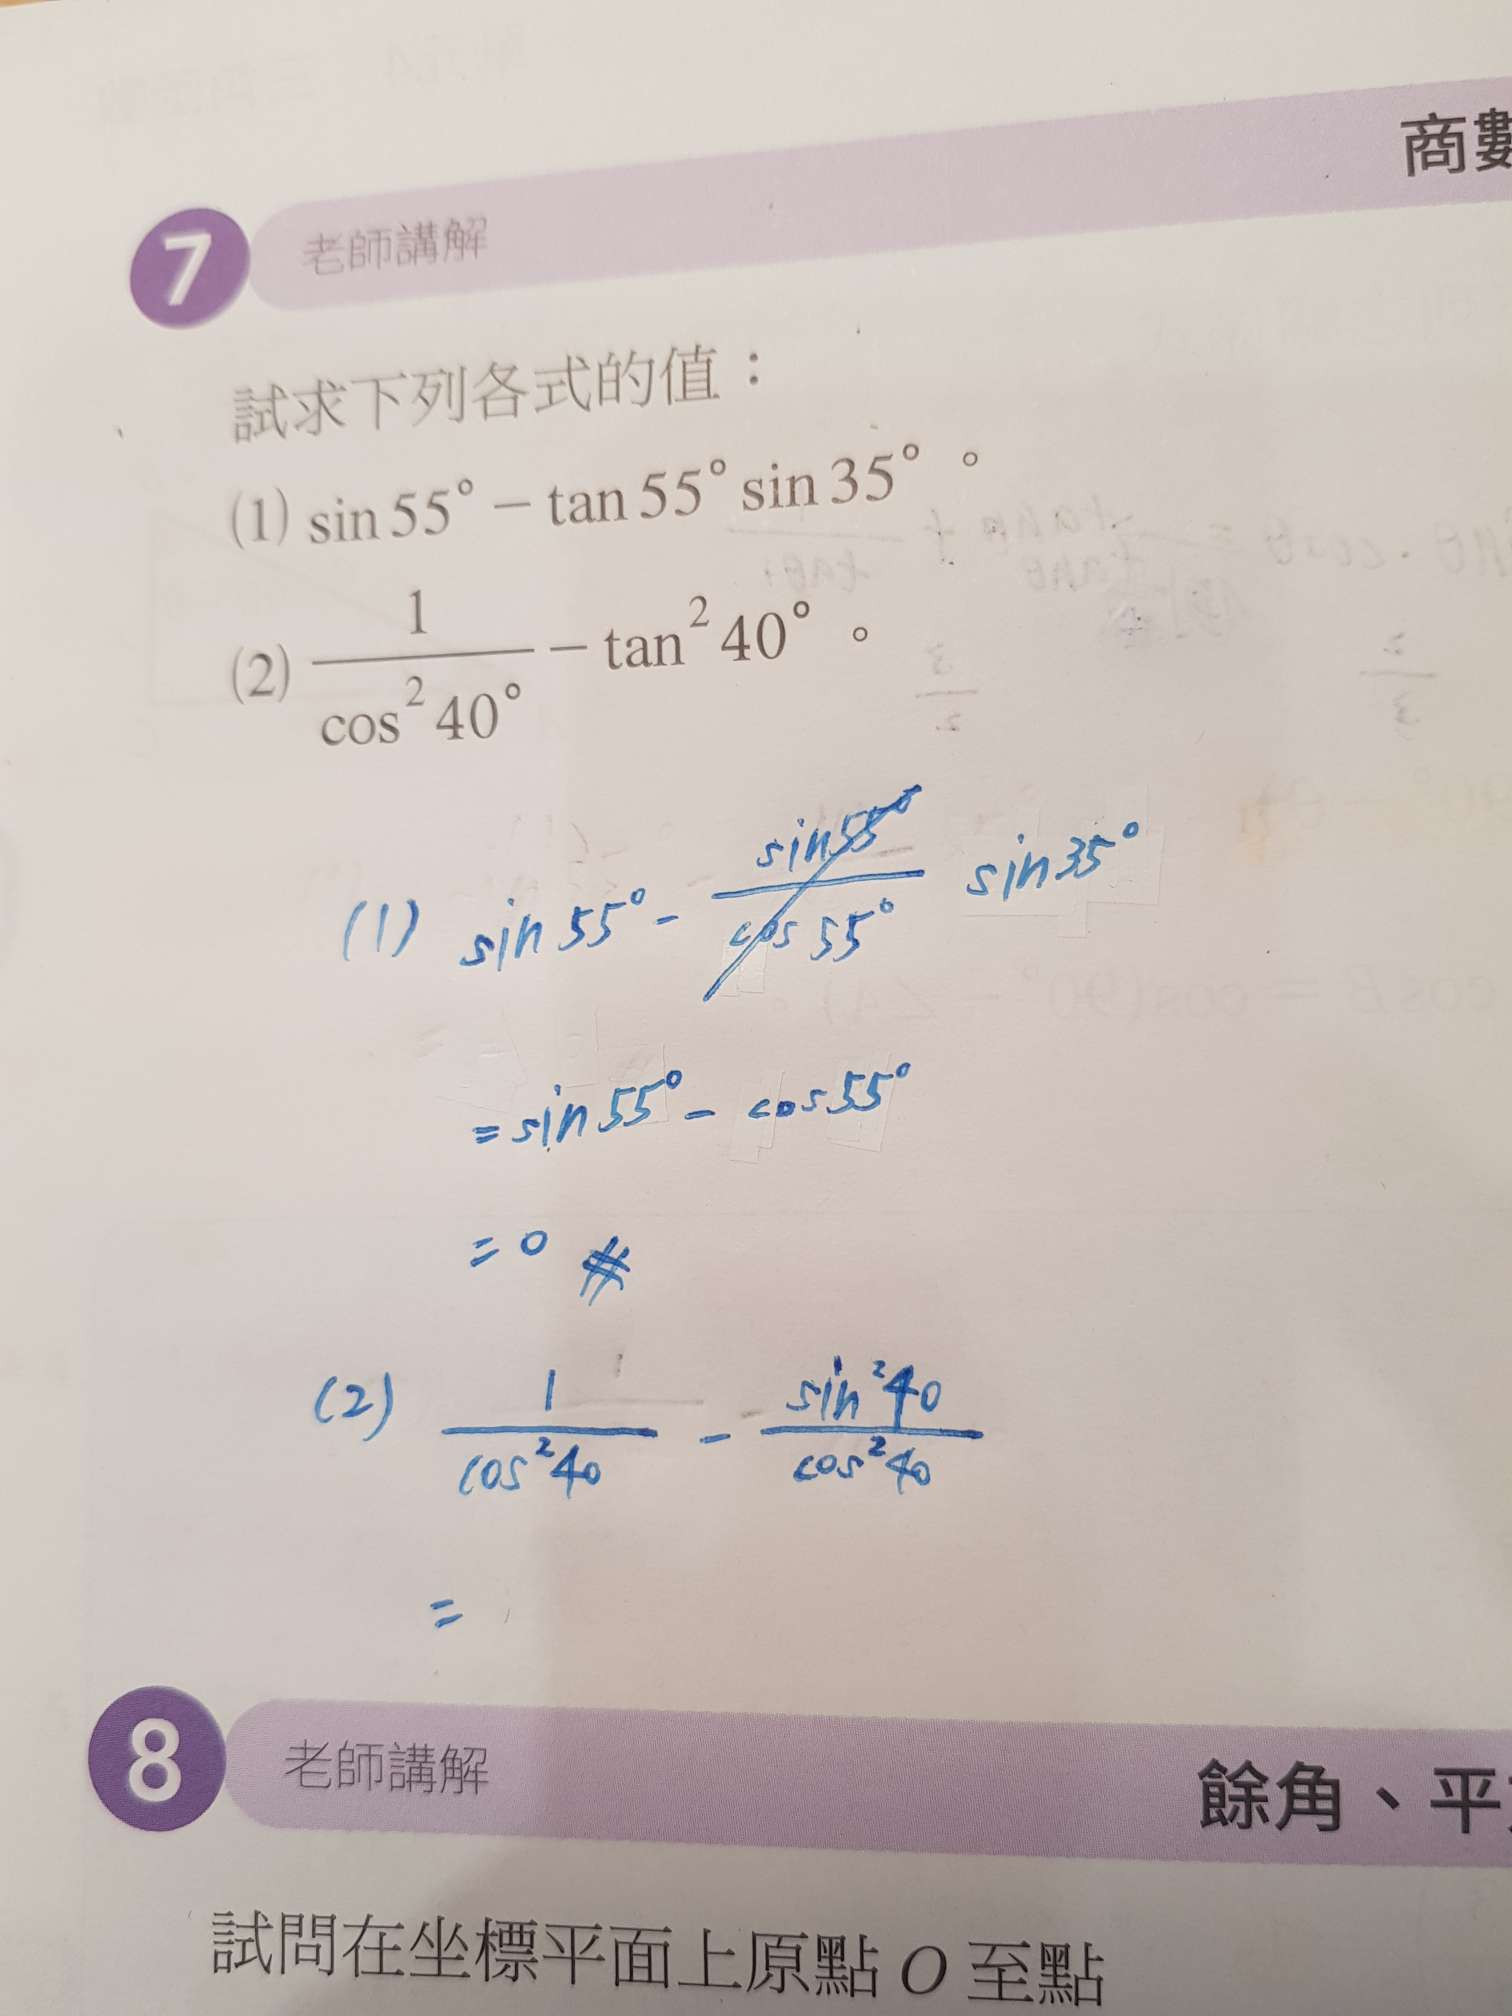 商數
7 老師講解
試求下列各式的值：
(1) sin 55° − tan 55° sin 35°。
(2) 1/cos² 40° − tan² 40°。
(1) sin 55° - sin 55°/cos 55° sin 35°
= sin 55° - cos 55°
= 0 #
(2) 1/cos² 40 - sin² 40/cos² 40
=
8 老師講解 餘角、平
試問在坐標平面上原點 O 至點